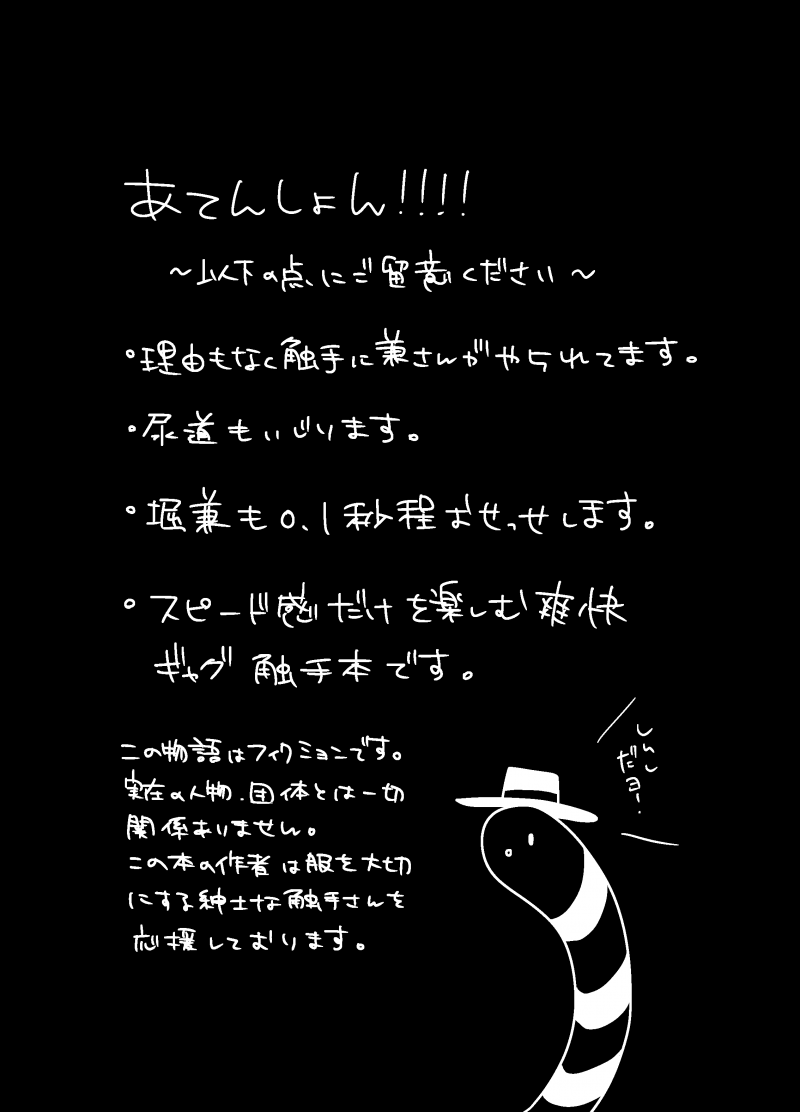 あてんしょん!!!!
～以下の点にご留意ください～
・理由もなく触手に兼さんがやられてます。
・尿道もいじります。
・堀兼も0.1秒程おせっせします。
・スピード感だけを楽しむ爽快
ギャグ触手本です。
この物語はフィクションです。
実在の人物.団体とは一切
関係ありません。
この本の作者は服を大切
にする紳士な触手さんを
応援しております。
しんし
だヨ!